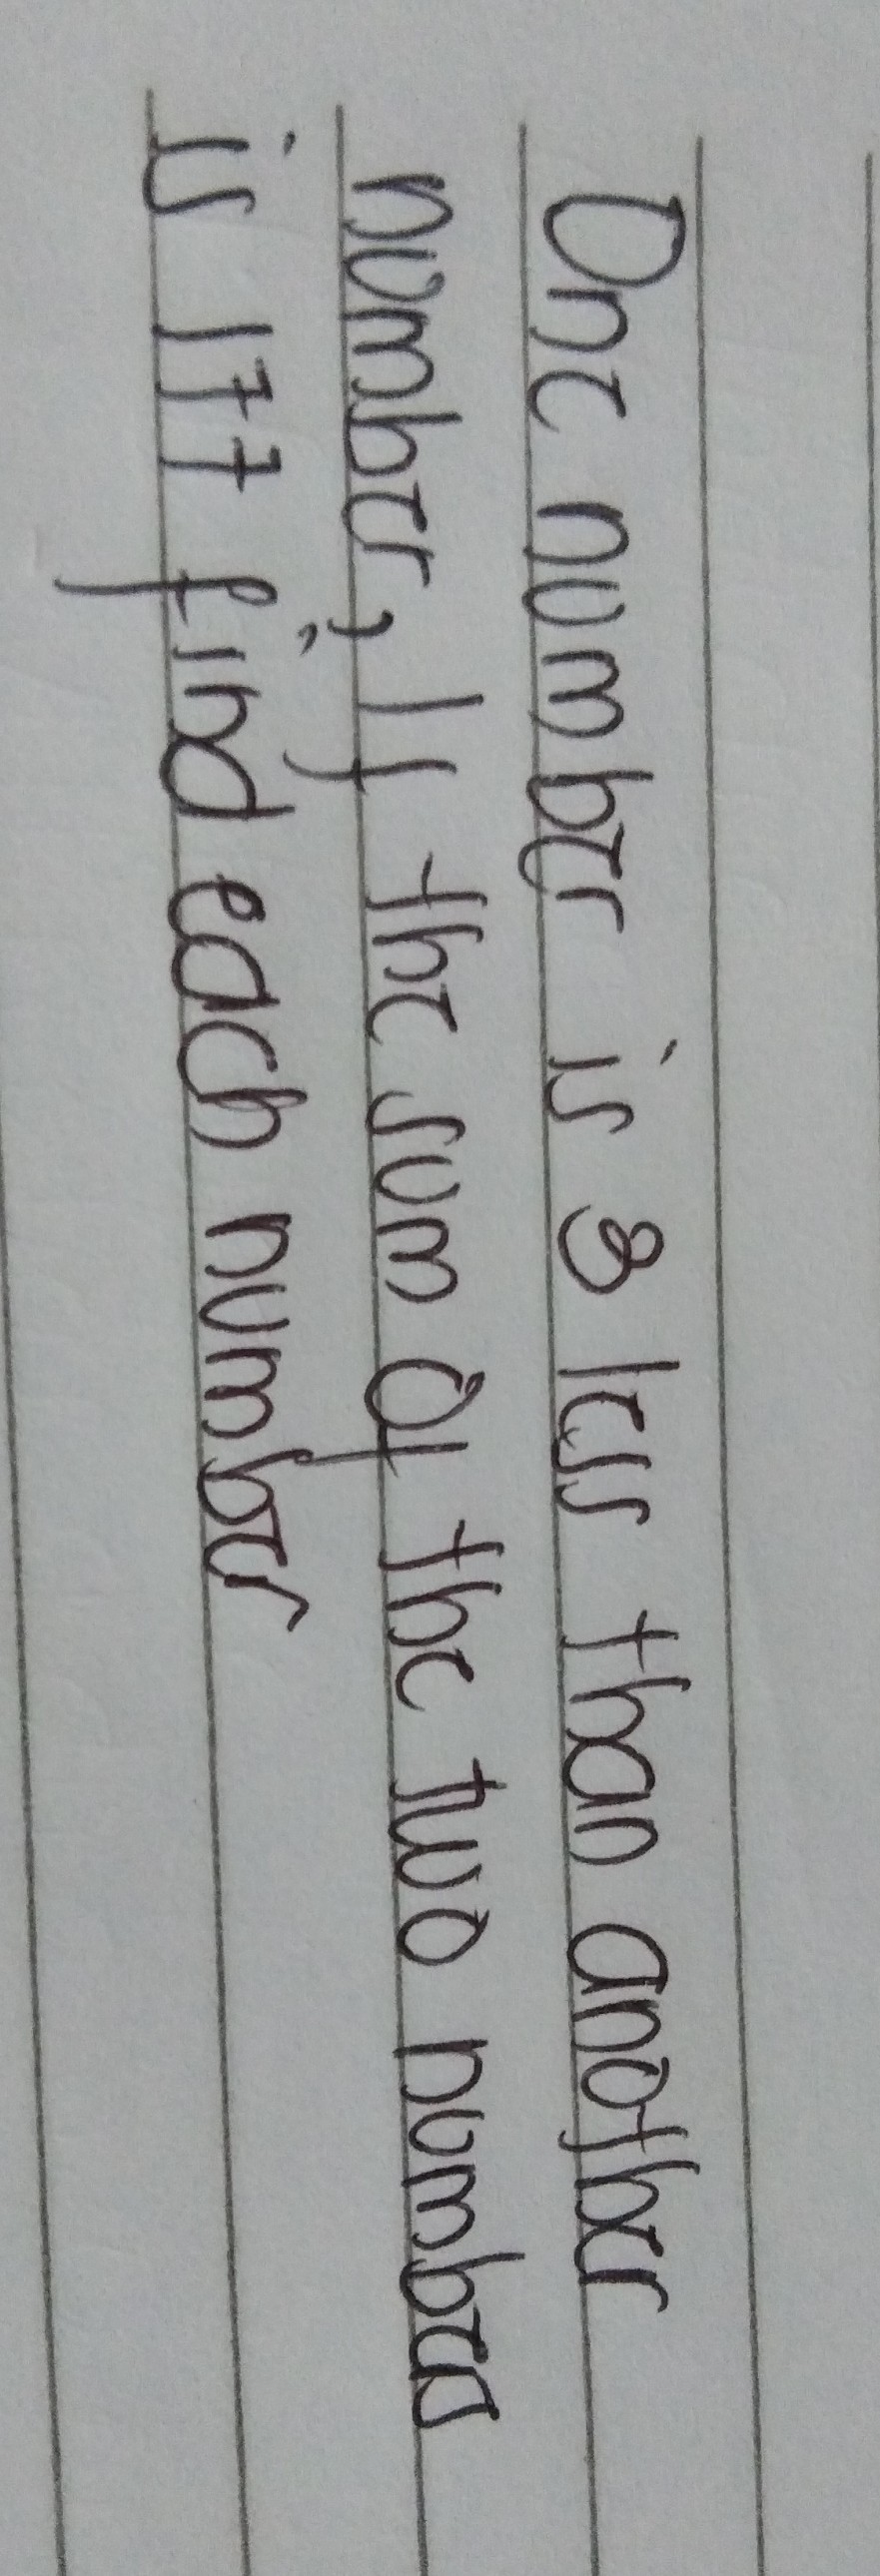 One number is 3 less than another
number, If the sum of the two numbers
is 177 find each number